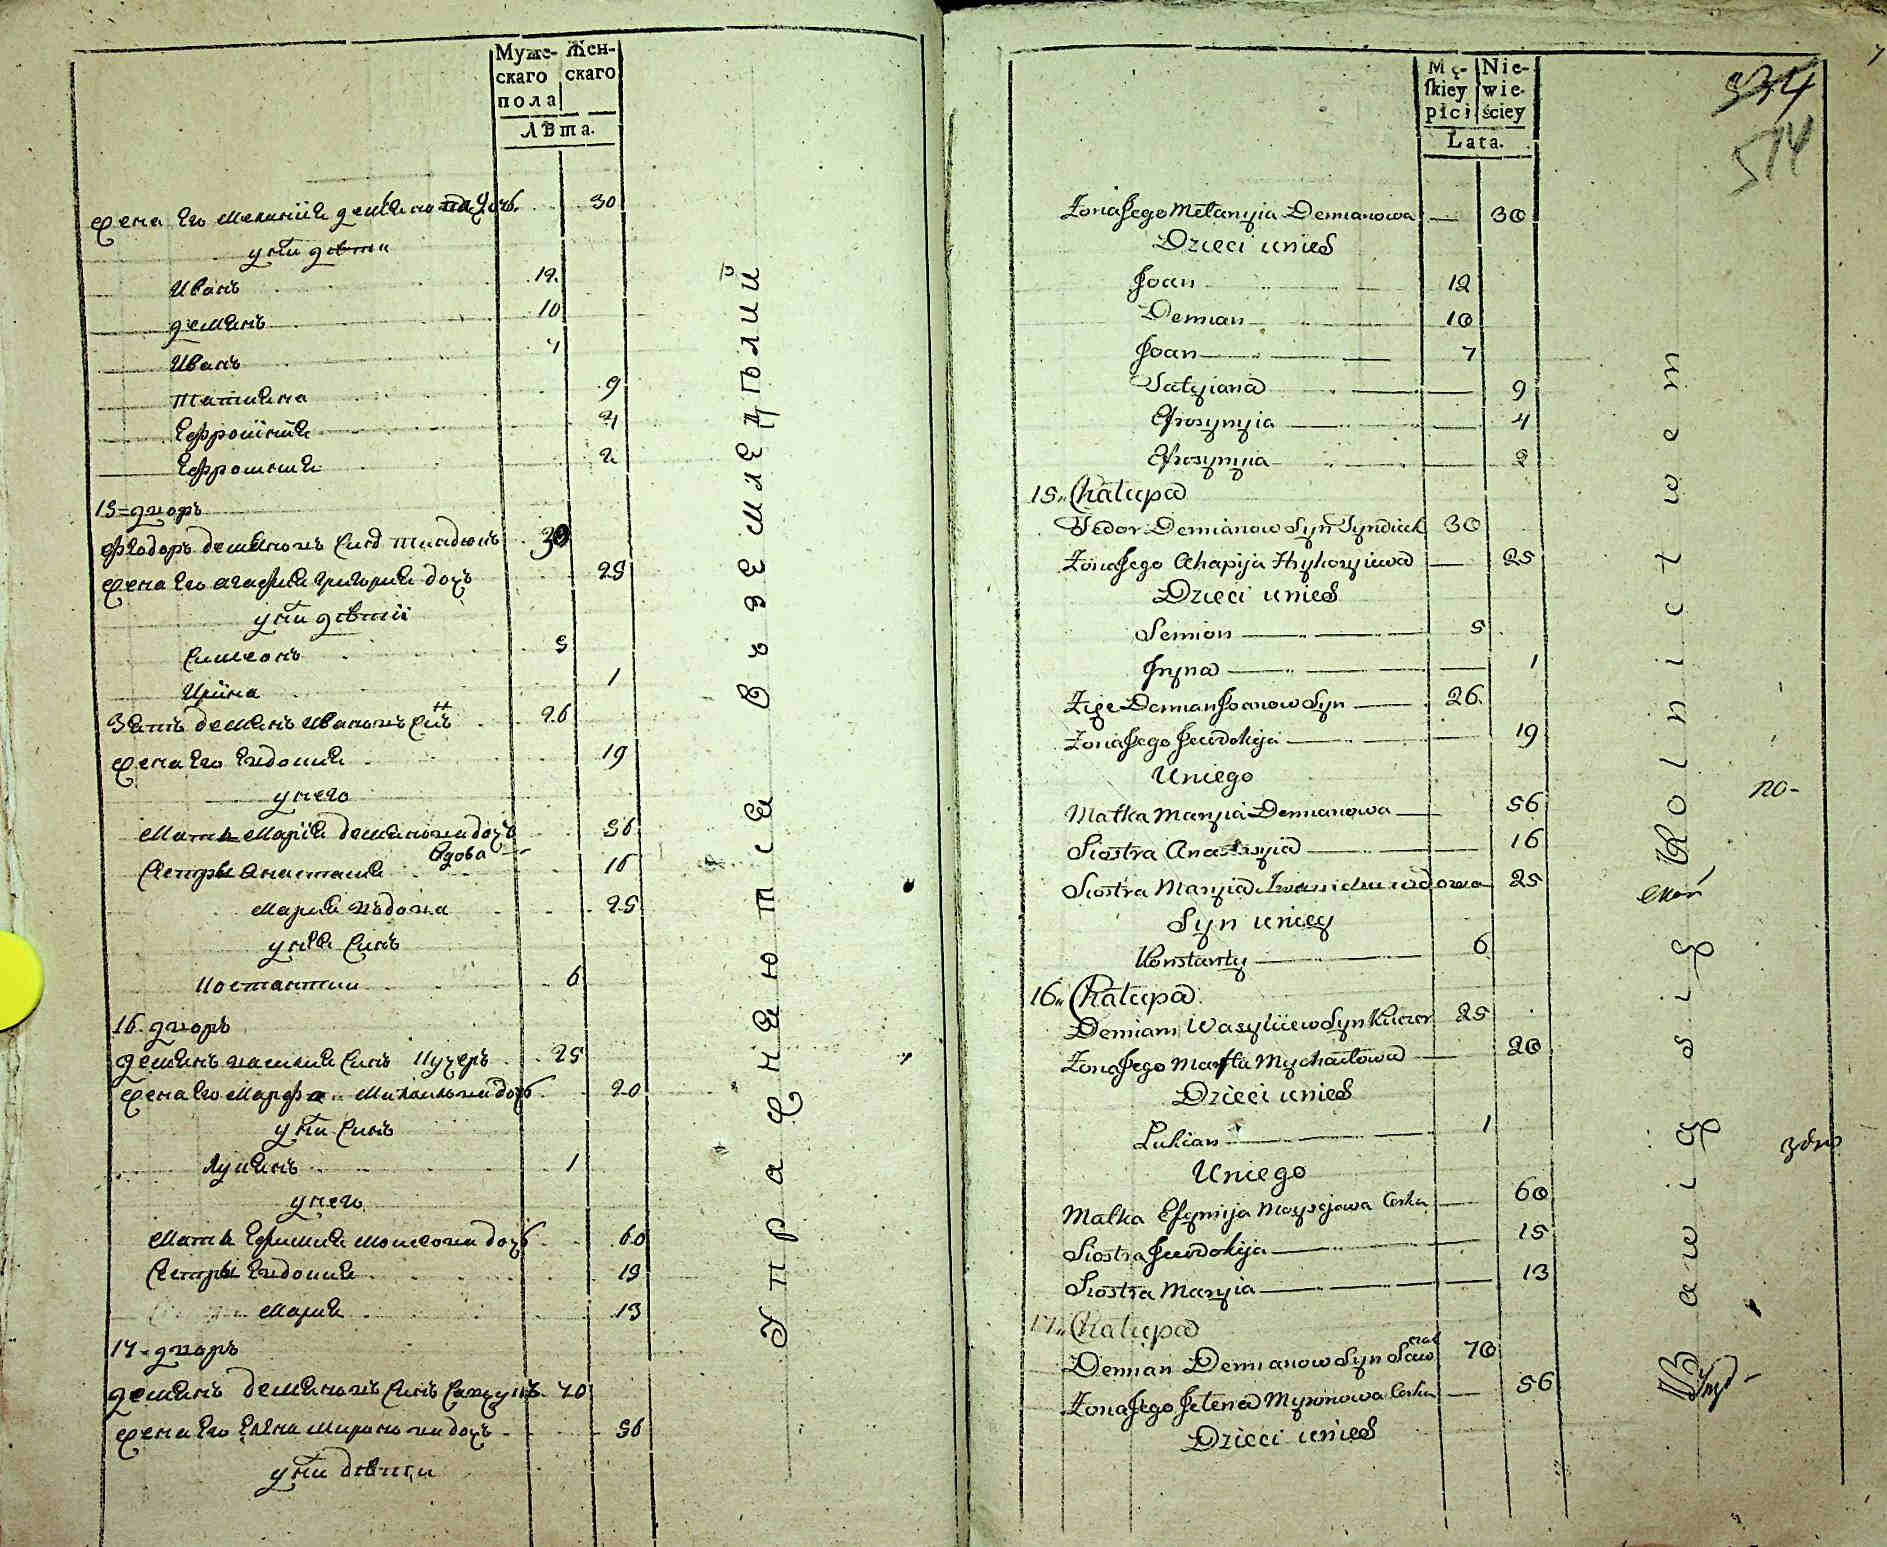 Муже-
скаго
пола
Жен-
скаго
Лѣта.
жена Его Меланія демяно дочь 30
у ни дѣти
Иванъ 12
демянъ 10
Иванъ 7
татияна 9
Ефросиния 4
Ефросиния 2
15 дворъ
Федоръ демяновъ Синъ 30
жена Его агафия григория дочъ 25
у ни дѣти
Симеонъ 5
Ирина 1
Зять демянъ Ивановъ Синъ 26
жена Его Евдокия 19
у него
Мать Мария демянова дочь 56
вдова
Сестры Анастасия 16
Мария вдова 25
у неи Синъ
Костантин 6
16 дворъ
демянъ василия Синъ Кучеръ 25
жена Его Марфа Михаилова дочь 20
у ни Синъ
Лукиянъ 1
у него
Мать Ефимия Моисеова дочь 60
Сестры Евдокия 15
Мария 13
17 дворъ
демянъ демяновъ Синъ 70
жена Его Елена Миронова дочь 56
у ни дѣти
Упражняются въ земледѣлий
Mę-
ſkiey
płci
Nie-
wie-
ściey
Lata.
334
514
Zona Jego Melanyia Demianowa 30
Dzieci u nich
Joan 12
Demian 10
Joan 7
Tatyiana 9
Efrosynyia 4
Efrosynyia 2
15 Chałupa
Fedor Demianow Syn Tyndiuk 30
Zona Jego Ahapija Hryhoryiewa 25
Dzieci u nich
Semion 5
Jryna 1
Zięć Demian Joanow Syn 26
Zona Jego Jewdokija 19
U niego
Matka Maryia Demianowa 56
Siostra Anastasyia 16
Siostra Maryia wdowa 25
Syn u niey
Konstanty 6
16 Chałupa
Demian Wasyliiew Syn Kuczer 25
Zona Jego Marta Mychaiłowa 20
Dzieci u nich
Lukian 1
U niego
Matka Efymija Moysejowa Corka 60
Siostra Jewdokija 15
Siostra Maryia 13
17 Chałupa
Demian Demianow Syn 70
Zona Jego Jelena Myronowa Corka 56
Dzieci u nich
Bawią się Rolnictwem
по-